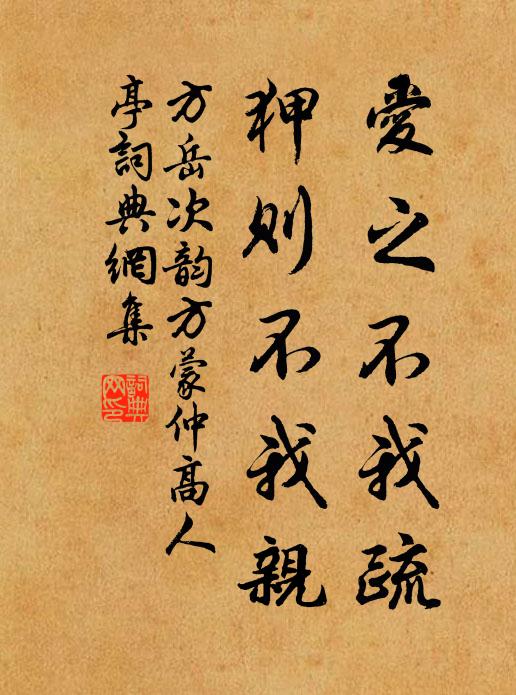 愛之不我疏
狎則不我親
方岳次韵方蒙仲高人
亭詞典網集
詞典
网印